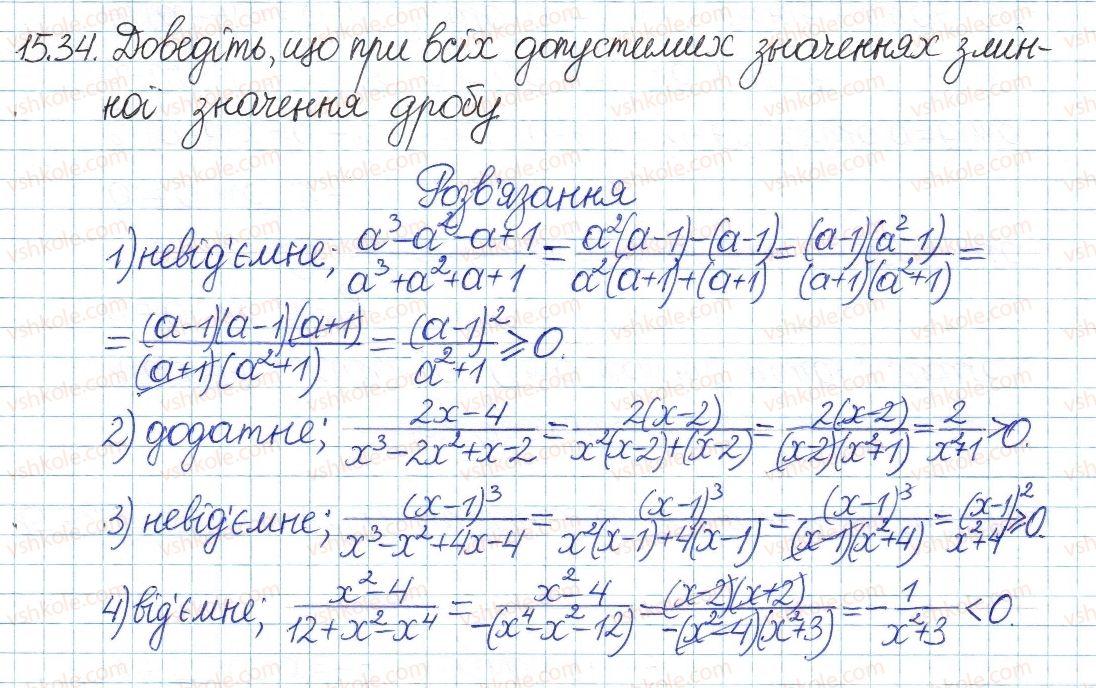 15.34. Доведіть, що при всіх допустимих значеннях змін-
ної значення дробу
Розв'язання
1) невід'ємне; (a³-a²-a+1)/(a³+a²+a+1) = (a²(a-1)-(a-1))/(a²(a+1)+(a+1)) = ((a-1)(a²-1))/((a+1)(a²+1)) =
= ((a-1)(a-1)(a+1))/((a+1)(a²+1)) = (a-1)²/(a²+1) ≥ 0.
2) додатне; (2x-4)/(x³-2x²+x-2) = (2(x-2))/(x²(x-2)+(x-2)) = (2(x-2))/((x-2)(x²+1)) = 2/(x²+1) > 0.
3) невід'ємне; (x-1)³/(x³-x²+4x-4) = (x-1)³/(x²(x-1)+4(x-1)) = (x-1)³/((x-1)(x²+4)) = (x-1)²/(x²+4) ≥ 0.
4) від'ємне; (x²-4)/(12+x²-x⁴) = (x²-4)/(-(x⁴-x²-12)) = ((x-2)(x+2))/(-(x²-4)(x²+3)) = -1/(x²+3) < 0.